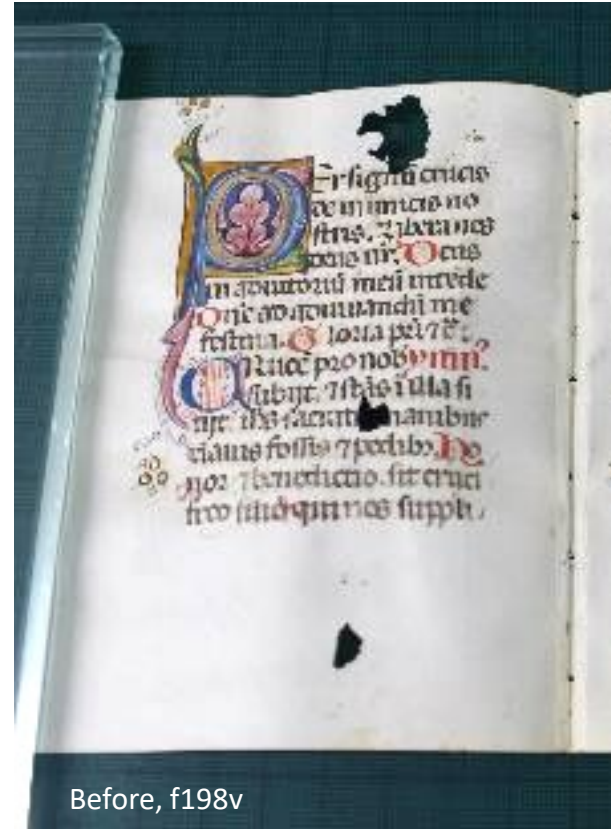 Per signū crucis
de inimicis no
stris. libera nos
deus nr̄. Deus
in adiutoriū meū intēde
Dn̄e ad adiuuandū me
festina. Gloria pr̄i ⁊c̄.
pro nob ymn⁹.
subijt. ⁊ stās ī illa si
tijt. ih̄s sacrat manibus
clauis fossis ⁊ pedibꝫ. Ho
nor ⁊ benedictio. sit cruci
filio qui nos suppli
Before, f198v